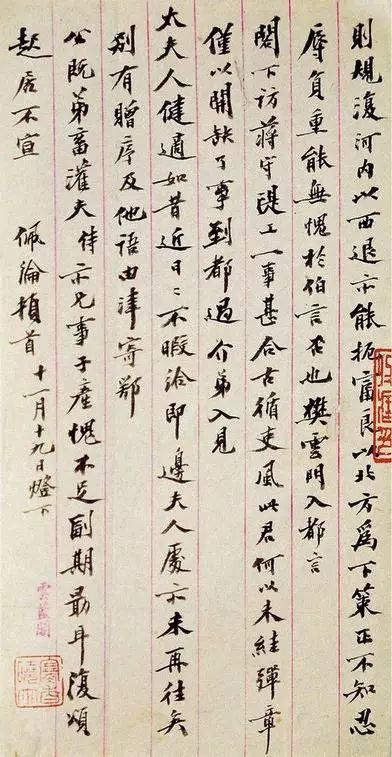 則規復河內以西退亦能扼富良以北方為下策正不知忍
辱負重能無愧於伯言否也樊雲門入都言
閣下訪蔣守隄工一事甚合古循吏風此君何以未絓彈章
僅以開缺了事到都過介弟入見
太夫人健適如昔近日〻不暇給即邊夫人處亦未再往矣
別有贈序及他語由津寄鄂
公既弟畜灌夫侍亦兄事子產愧不足副期勗耳復頌
起居不宣 佩綸頓首 十一月十九日燈下
雲藍閣